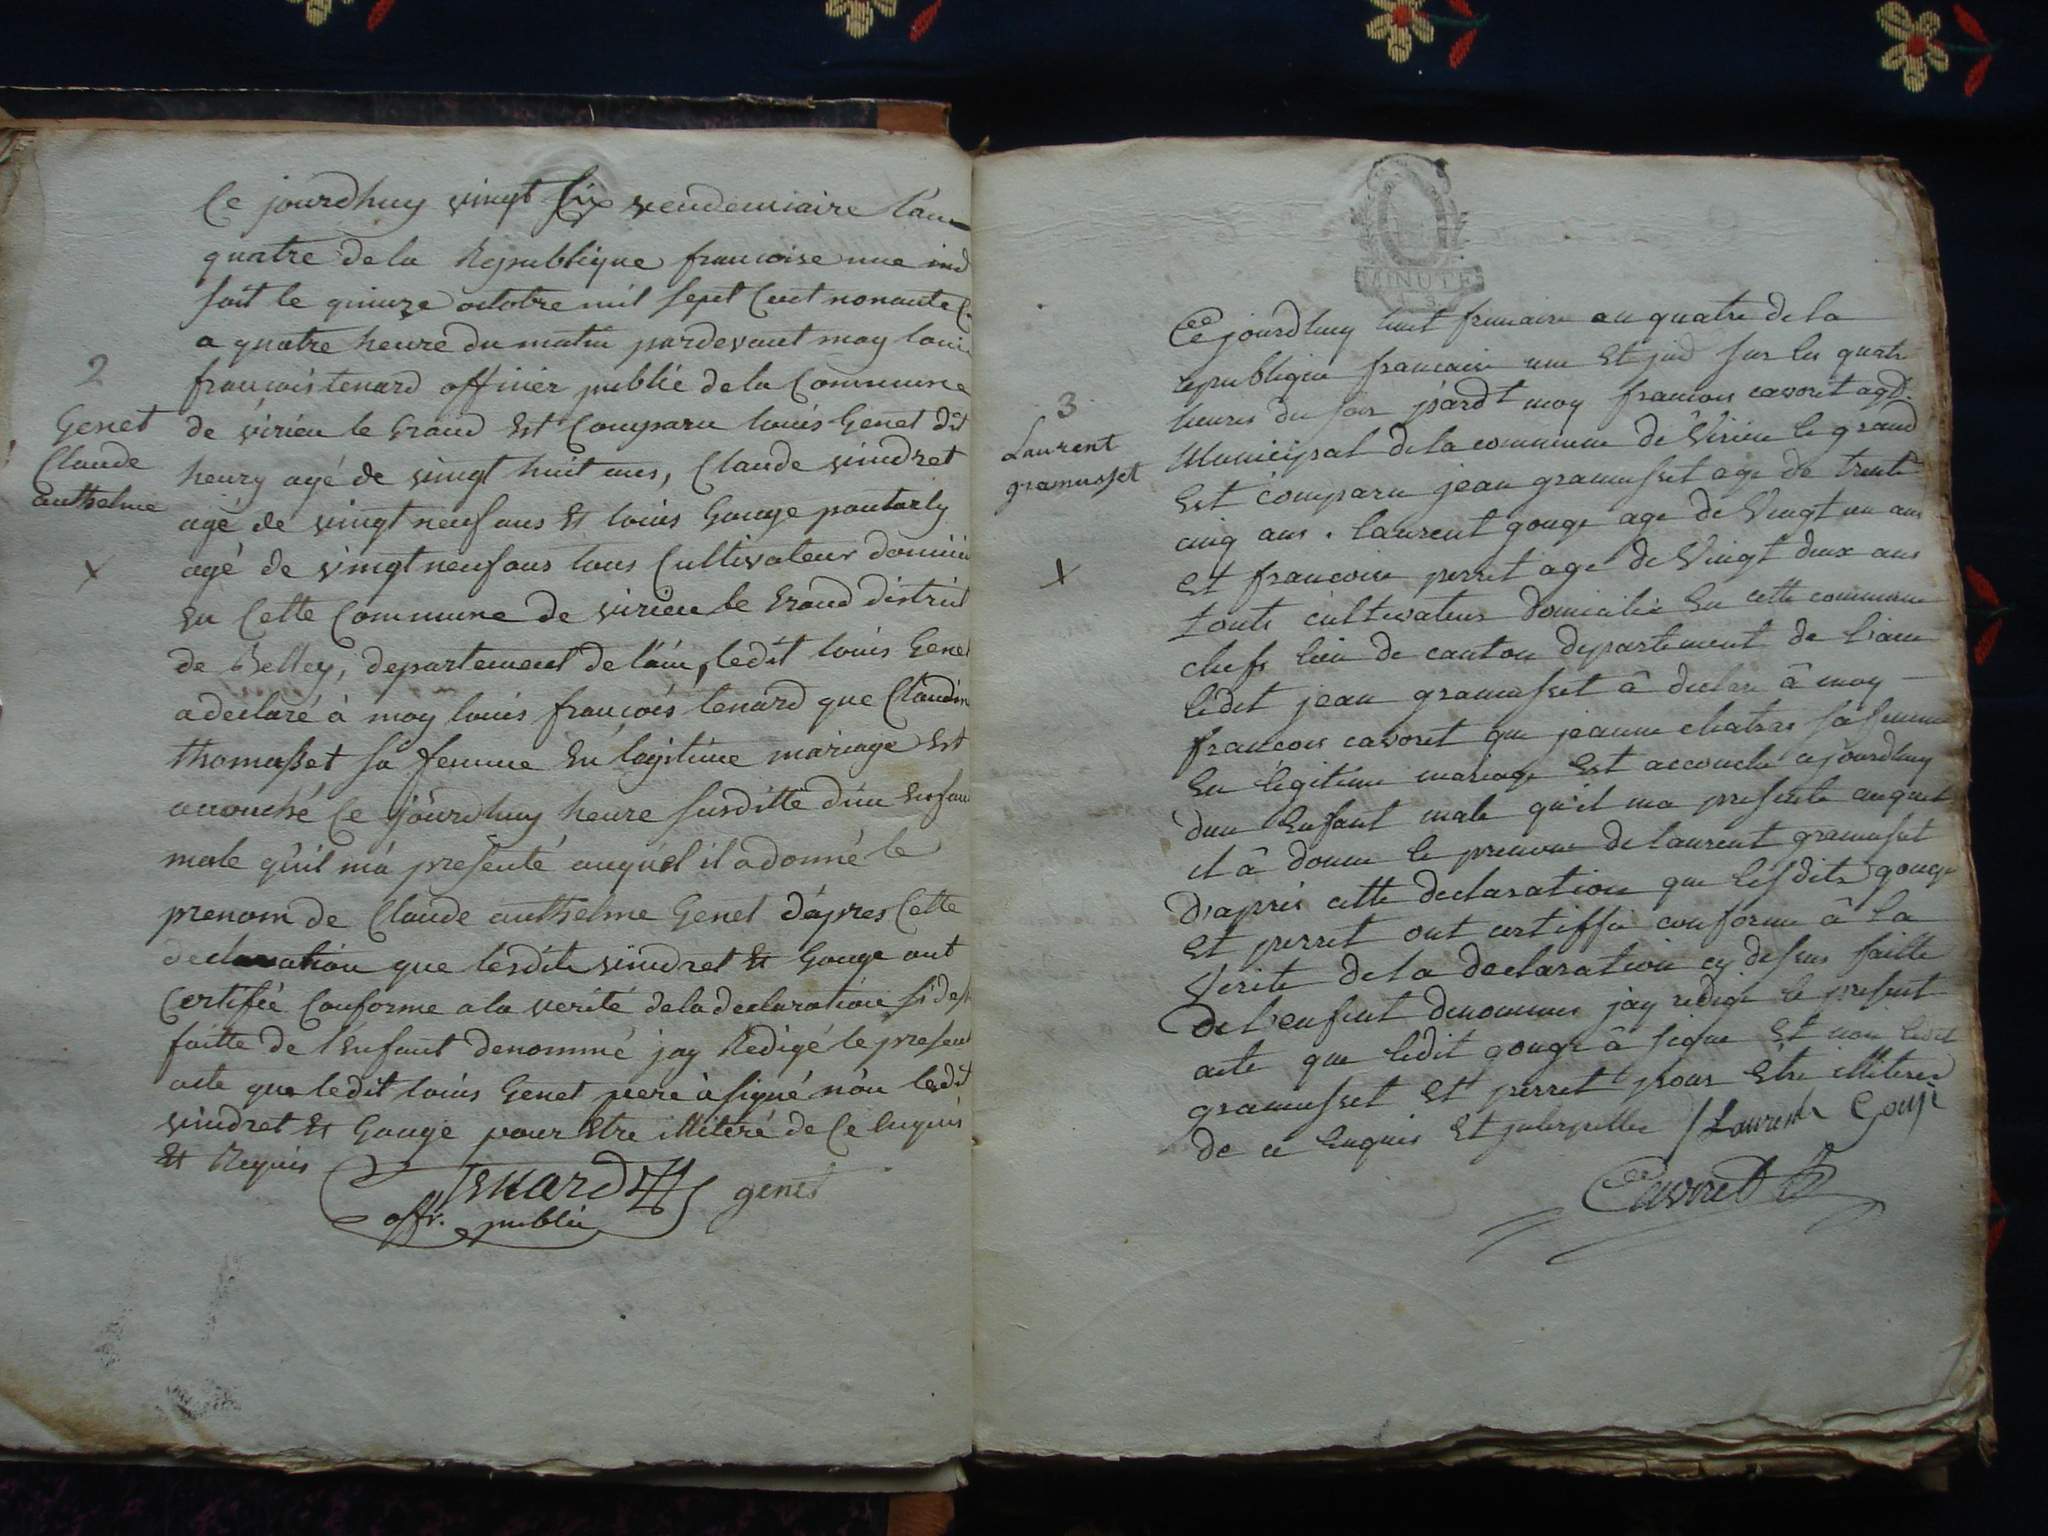 Ce jourdhuy vingt six vendemiaire l'an
quatre de la Republique francoise une ind
soit le quinze octobre mil sept Cent nonante C
a quatre heure du matin pardevant moy louis
2
francois tenard officier publié de la Commune
Genet
de virieu le Grand Est Comparu louis Genet dit
Claude
henry agé de vingt huit ans, Claude vindret
anthelme
agé de vingt neuf ans Et louis Gouge pantarly
agé de vingt neuf ans tous Cultivateur domicili
x
En Cette Commune de virieu le Grand district
de Belley, departement de l'ain, ledit louis Genet
a declaré à moy louis françois tenard que Claudine
thomasset sa femme En legitime mariage Est
acouché Ce jourdhuy heure susditte d'un Enfant
male qu'il m'a presenté auquel il a donné le
prenom de Claude anthelme Genet d'apres Cette
declaration que lesdits vindret Et Gouge ont
Certifié Conforme a la verité de la declaration
faitte de l'Enfant denommé jay Redigé le present
acte que ledit louis Genet pere à signé non lesdit
vindret Et Gouge pour Etre illiteré de Ce Enquis
Et Requis
tenard genet
offr. publié
MINUTE
Ce jourdhuy huit frimaire an quatre de la
republique francaise une Et jnd sur les quatre
3
heures du soir pardt moy francois cavoret agt.
Laurent
Municipal de la commune de Virieu le grand
gramusset
Est comparu jean gramusset age de trente
cinq ans. laurent gouge age de Vingt un ans
x
Et francoise perret age de Vingt deux ans
touts cultivateurs domicilié En cette commune
chefs lieu de canton departement de l'ain
ledit jean gramusset â declare â moy
francois cavoret que jeanne chatras sa femme
En legitime mariage Est accouché ajourdhuy
dun Enfant male qu'il ma presente auquel
il â donne le prenom de laurent gramusset
D'apres cette declaration que lesdits gouge
Et perret ont certiffie conforme â la
Verite de la declaration cy dessus faitte
de l'enfant denommes jay redigé le present
acte que ledit gouge â signe Et non ledit
gramusset Et perret pour Etre illiteres
de ce Enquis Et jnterpelles Laurent Gouje
Cavoret